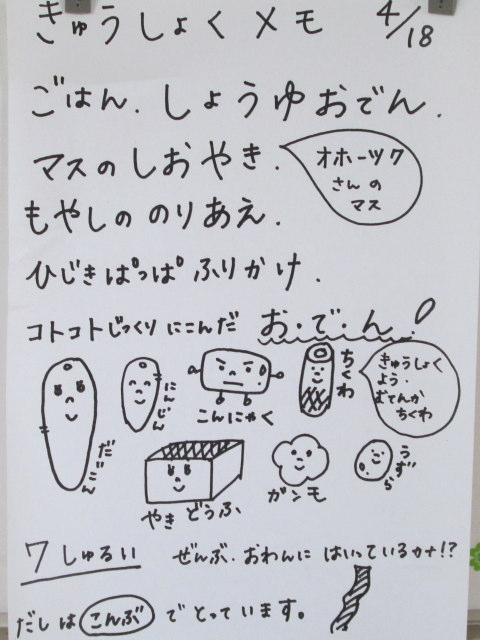 きゅうしょくメモ 4/18
ごはん. しょうゆおでん.
マスのしおやき.
オホーツク
さんの
マス
もやしの のりあえ.
ひじきぱっぱ ふりかけ.
コトコトじっくり にこんだ お・で・ん!
だいこん
にんじん
こんにゃく
ちくわ
きゅうしょく
よう.
むてんか
ちくわ
やき どうふ
ガンモ
うずら
7 しゅるい ぜんぶ. おわんに はいっているカナ!?
だしは こんぶ でとっています。